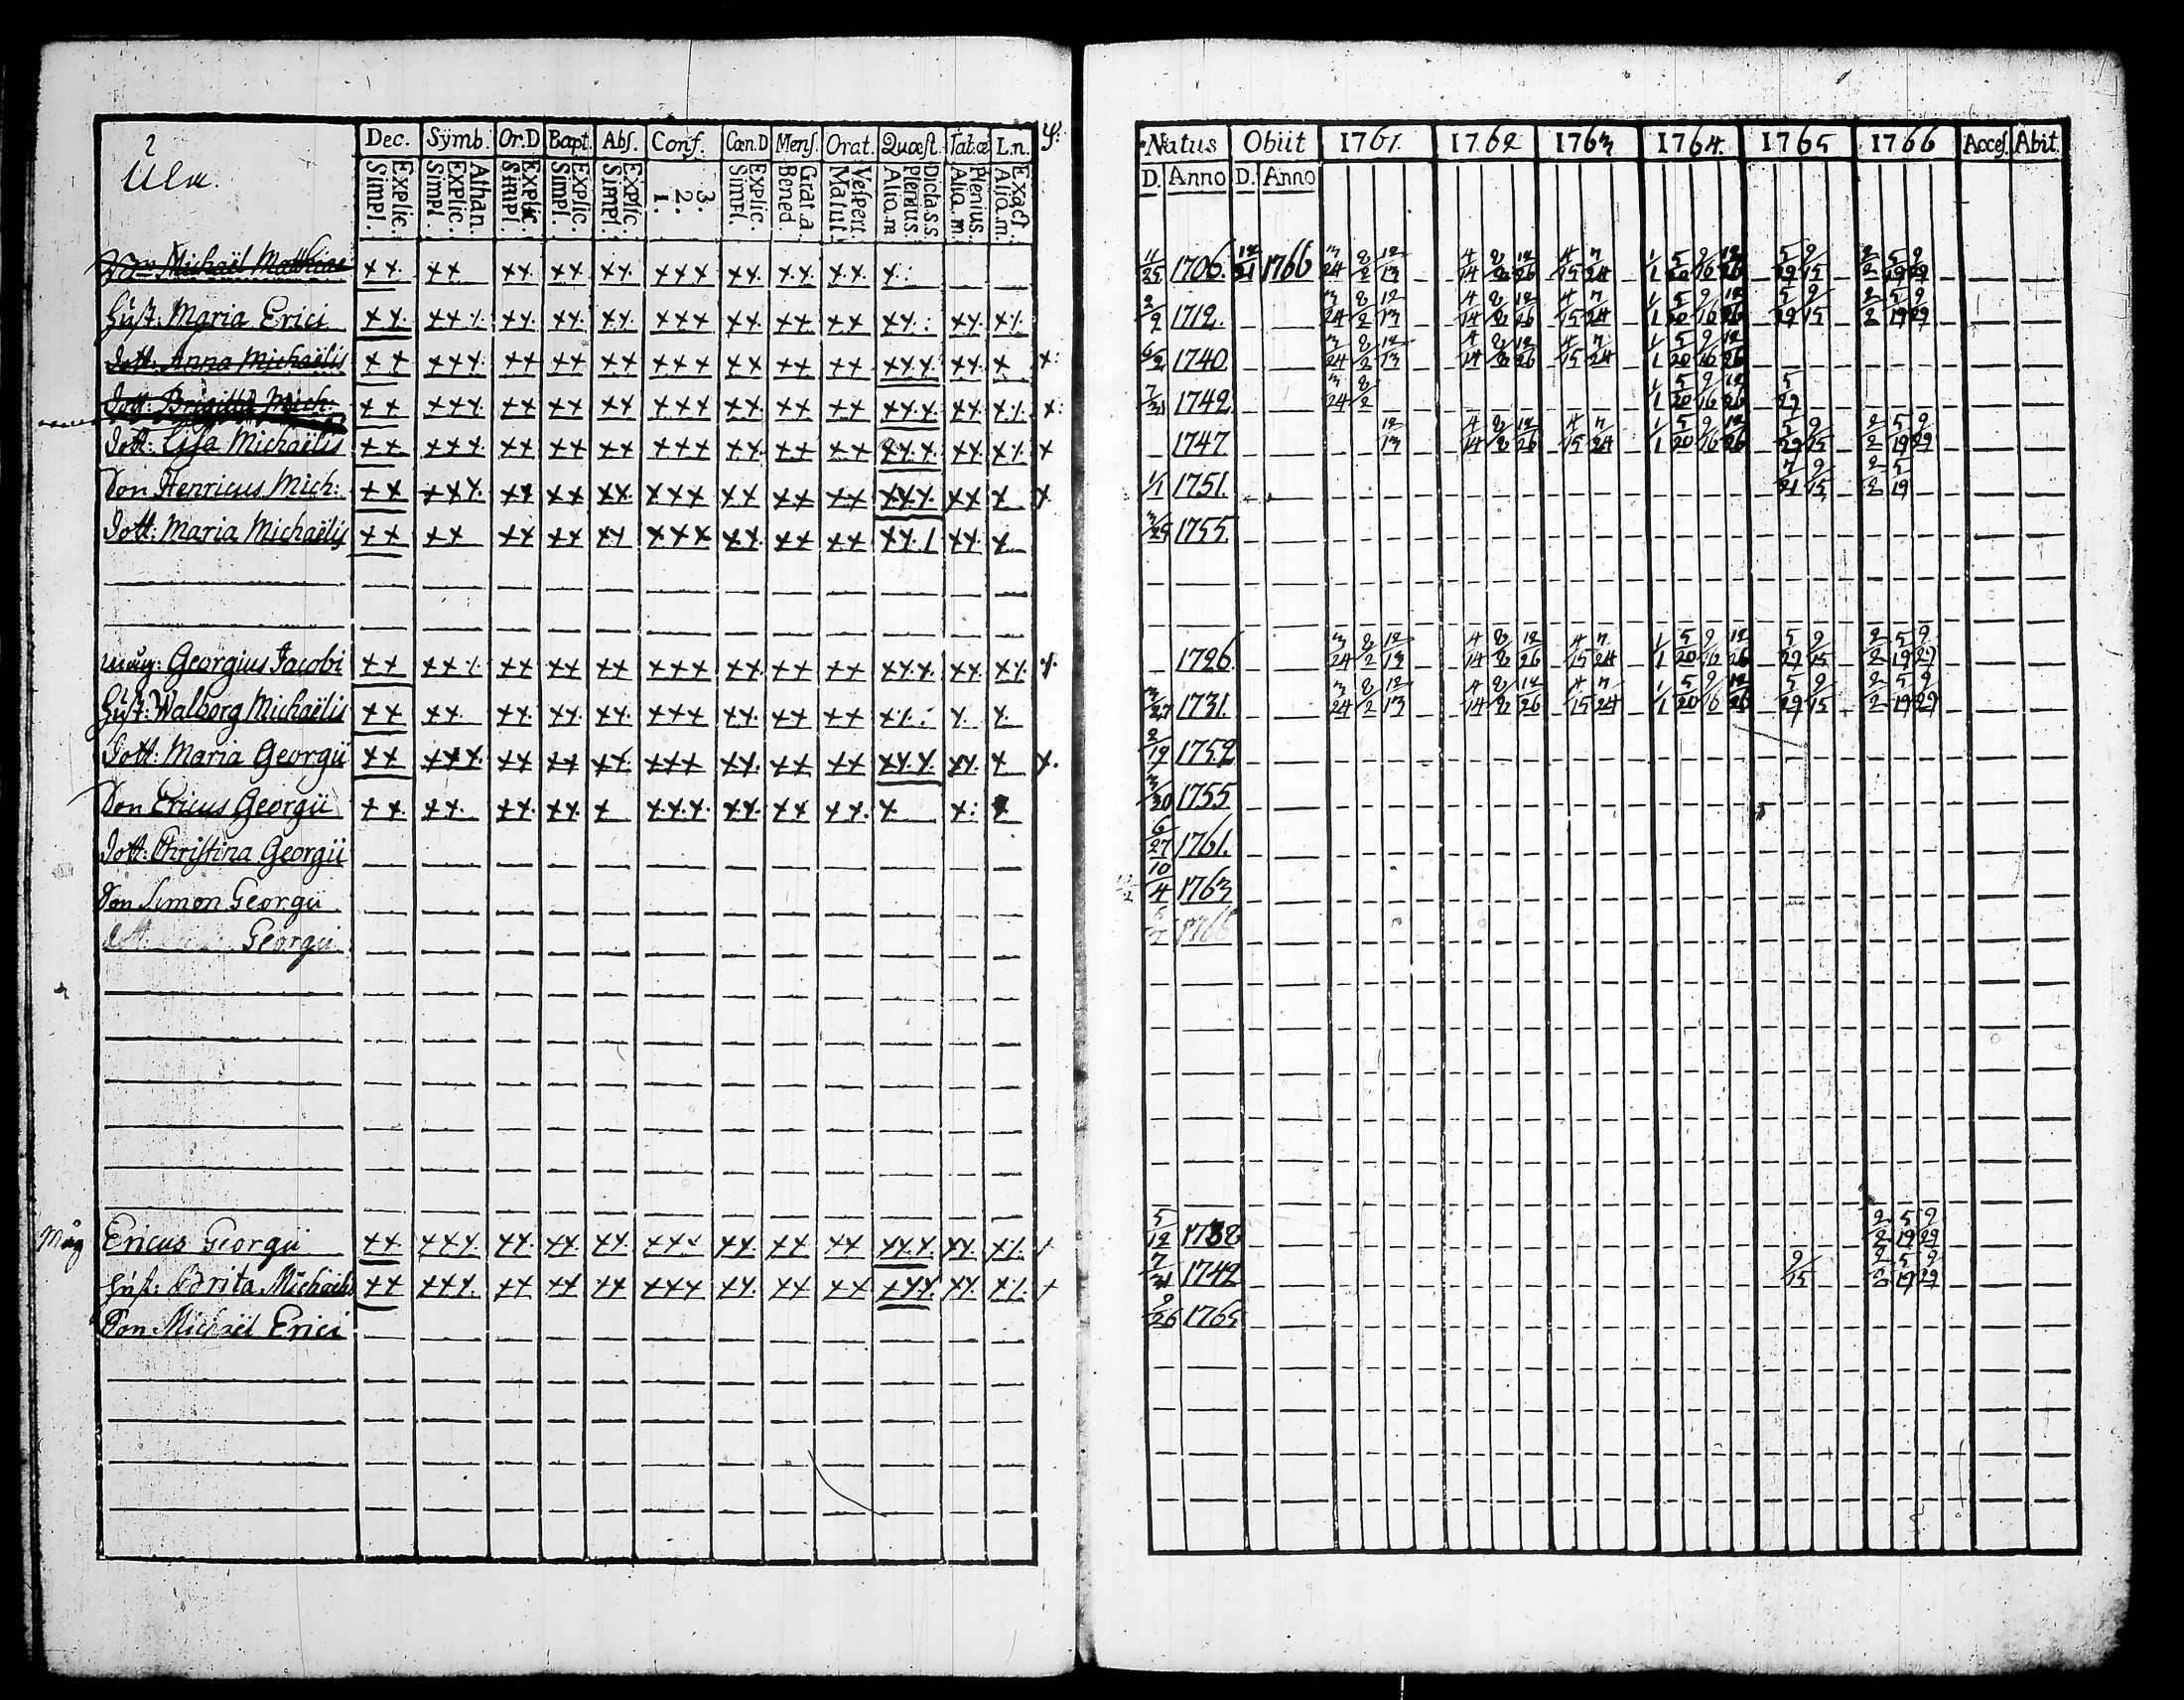 2
Ulu.
Dec. Sÿmb. Or.D Bapt. Abs. Conf. Cœn.D Mens. Orat. Quæst. Tat.æ L.n.
Explic. Simpl.
Athan. Explic. Simpl.
Explic. Simpl.
Explic. Simpl.
Explic. Simpl.
3. 2. 1.
Explic. Simpl.
Grat.a Bened
Vespert. Matut.
Dicta.s.s Plenius. Aliq.m
Plenius. Aliq.m.
Exact Aliq.m.
Michaël Matthiae
Hust. Maria Erici
Dott: Anna Michaëlis
Dott: Brigitta Mich:
Dott: Lisa Michaëlis
Son Henricus Mich:
Dott: Maria Michaëlis
Måg: Georgius Jacobi
Hust: Walborg Michaëlis
Dott: Maria Georgii
Son Ericus Georgii
Dott: Christina Georgii
Son Simon Georgii
Dott: Georgii
Måg Ericus Georgii
Hust: Brita Michaëlis
Son Michaël Erici
Natus Obiit 1761. 1762 1763 1764. 1765 1766 Acces. Abit.
D. Anno D. Anno
11/25 1706. 12/21 1766 3/24 8/2 12/13 4/14 8/8 12/26 4/15 7/24 1/1 5/20 9/16 12/26 5/29 9/15 2/2 5/19 9/29
2/9 1712. 3/24 8/2 12/13 4/14 8/8 12/26 4/15 7/24 1/1 5/20 9/16 12/26 5/29 9/15 2/2 5/19 9/29
1740. 3/24 8/2 12/13 4/14 8/8 12/26 4/15 7/24 1/1 5/20 9/16 12/26
7/31 1742. 3/24 8/2 1/1 5/20 9/16 12/26 5/29
1747 12/13 4/14 8/8 12/26 4/15 7/24 1/1 5/20 9/16 12/26 5/29 9/15 2/2 5/19 9/29
1/1 1751. 7/21 9/15 2/2 5/19
3/25 1755.
1726. 3/24 8/2 12/13 4/14 8/8 12/26 4/15 7/24 1/1 5/20 9/16 12/26 5/29 9/15 2/2 5/19 9/29
3/27 1731. 3/24 8/2 12/13 4/14 8/8 12/26 4/15 7/24 1/1 5/20 9/16 12/26 5/29 9/15 2/2 5/19 9/29
2/19 1752
3/30 1755
6/27 1761.
10/4 1763
1766
5/12 1738 2/2 5/19 9/29
7/31 1742 9/15 2/2 5/19 9/29
9/26 1765